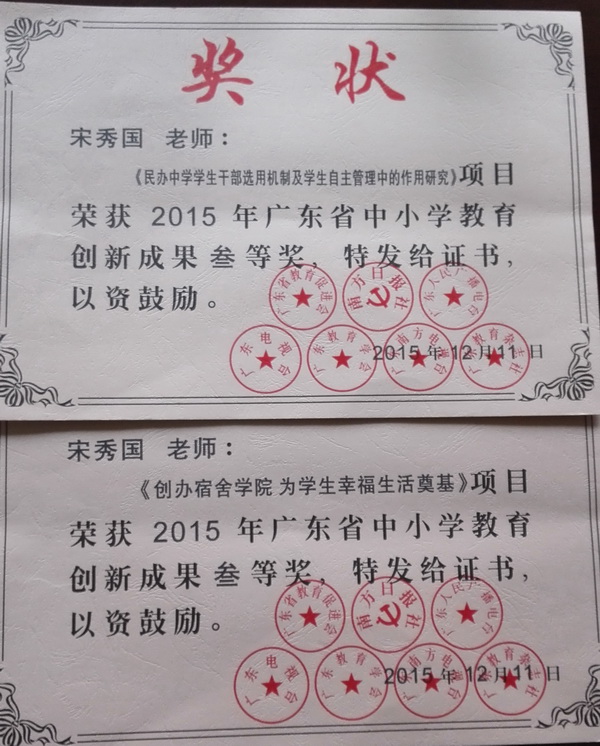 奖 状
宋秀国 老师：
《民办中学学生干部选用机制及学生自主管理中的作用研究》项目
荣获 2015 年广东省中小学教育
创新成果叁等奖，特发给证书，
以资鼓励。
广东省教育促进会
南方日报社
广东人民广播电台
广东电视台
广东教育学会
广东南方电视台
广东教育杂志社
2015 年 12 月 11 日
宋秀国 老师：
《创办宿舍学院 为学生幸福生活奠基》项目
荣获 2015 年广东省中小学教育
创新成果叁等奖，特发给证书，
以资鼓励。
广东省教育促进会
南方日报社
广东人民广播电台
广东电视台
广东教育学会
广东南方电视台
广东教育杂志社
2015 年 12 月 11 日